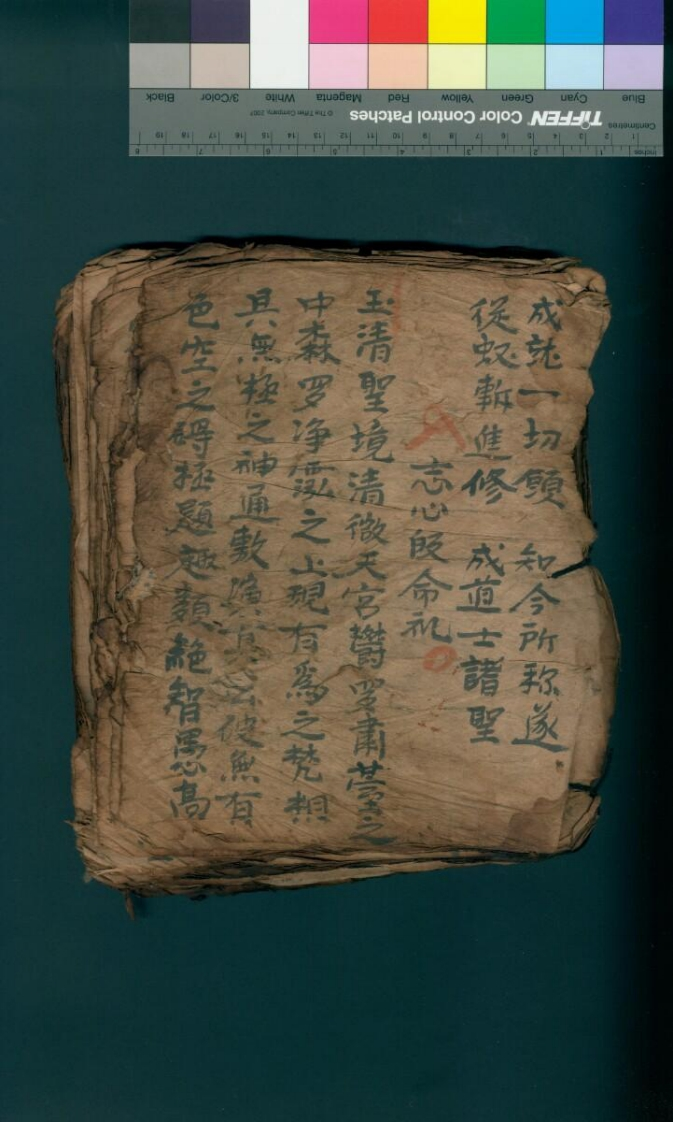 成就一切願 知今所称遂
從 漸進修 成道士諸聖
志心皈命礼
玉清聖境清微天宮鬱罗肅臺之
中森罗净泓之上現有為之梵相
具無極之神通敷 破無有
色空之碍極題 類絶智愚高
Blue
Cyan
Green
Yellow
Red
Magenta
White
3/Color
Black
TIFFEN Color Control Patches
© The Tiffen Company, 2007
Centimetres
1 2 3 4 5 6 7 8 9 10 11 12 13 14 15 16 17 18 19
Inches
1 2 3 4 5 6 7 8